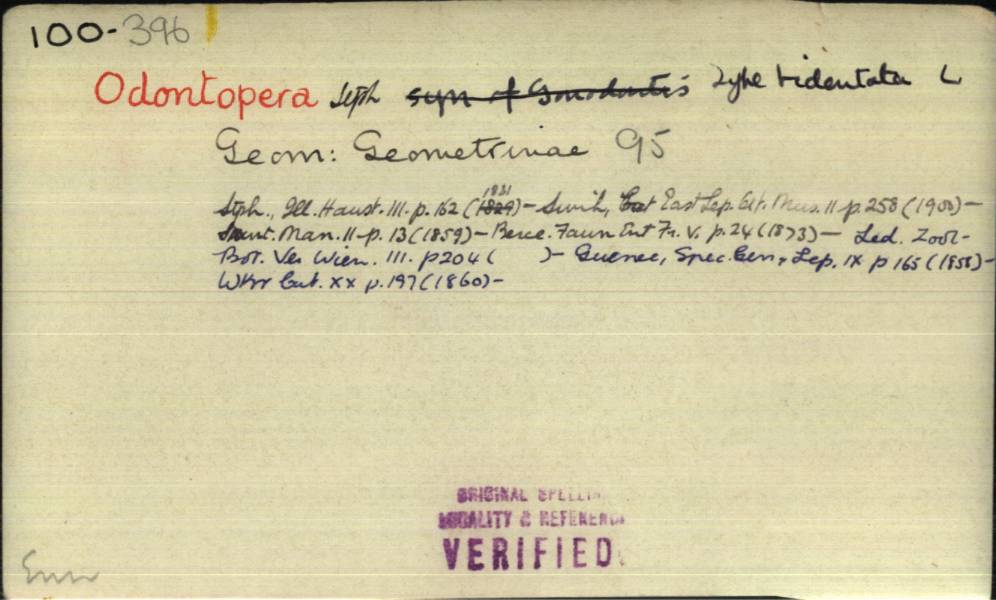 100-396
Odontopera Steph syn of Gonodontis Type bidentata L
Geom: Geometrinae 95
Steph., Ill. Haust. III. p. 162 (1829) 1831 - Swinh, Cat East Lep. Het. Mus. II p 258 (1900) -
Staint. Man. II p. 13 (1859) - Berce. Faun Ent Fr. V. p. 24 (1873) - Led. Zool-
Bot. Ver Wien. III. p 204 ( ) - Guenee, Spec. Gen, Lep. IX p 165 (1858) -
Wkr Cat. XX p. 197 (1860) -
ORIGINAL SPELLIN
LOCALITY & REFERENC
VERIFIED